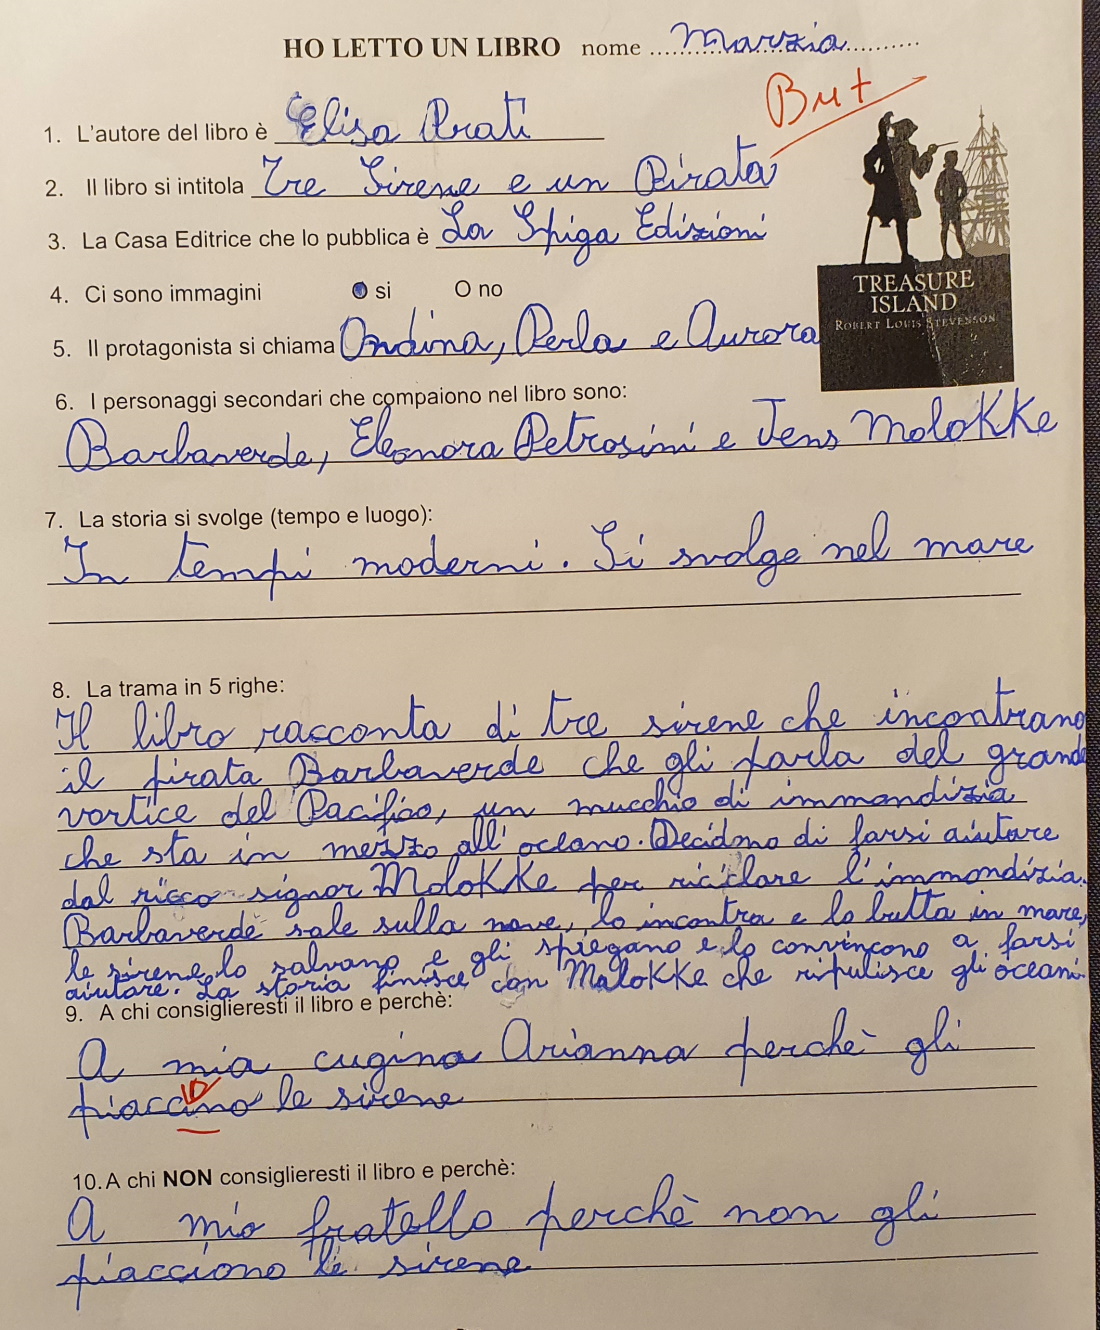 HO LETTO UN LIBRO nome Marzia
Bu+
1. L'autore del libro è Elisa Prati
2. Il libro si intitola Tre Sirene e un Pirata
3. La Casa Editrice che lo pubblica è La Spiga Edizioni
4. Ci sono immagini si O no
TREASURE
ISLAND
ROBERT LOUIS STEVENSON
5. Il protagonista si chiama Ondina, Perla e Aurora
6. I personaggi secondari che compaiono nel libro sono:
Barbaverde, Eleonora Petrosini e Jens MoloKKe
7. La storia si svolge (tempo e luogo):
In tempi moderni. Si svolge nel mare
8. La trama in 5 righe:
Il libro racconta di tre sirene che incontrano
il pirata Barbaverde che gli parla del grande
vortice del Pacifico, un mucchio di immondizia
che sta in mezzo all'oceano. Decidono di farsi aiutare
dal ricco signor MoloKKe per riciclare l'immondizia.
Barbaverde sale sulla nave, lo incontra e lo butta in mare,
le sirene lo salvano e gli spiegano e lo convincono a farsi
aiutare. La storia finisce con MaloKKe che ripulisce gli oceani.
9. A chi consiglieresti il libro e perchè:
A mia cugina Arianna perchè gli
piaccino le sirene
io
10. A chi NON consiglieresti il libro e perchè:
A mio fratello perchè non gli
piacciono le sirene